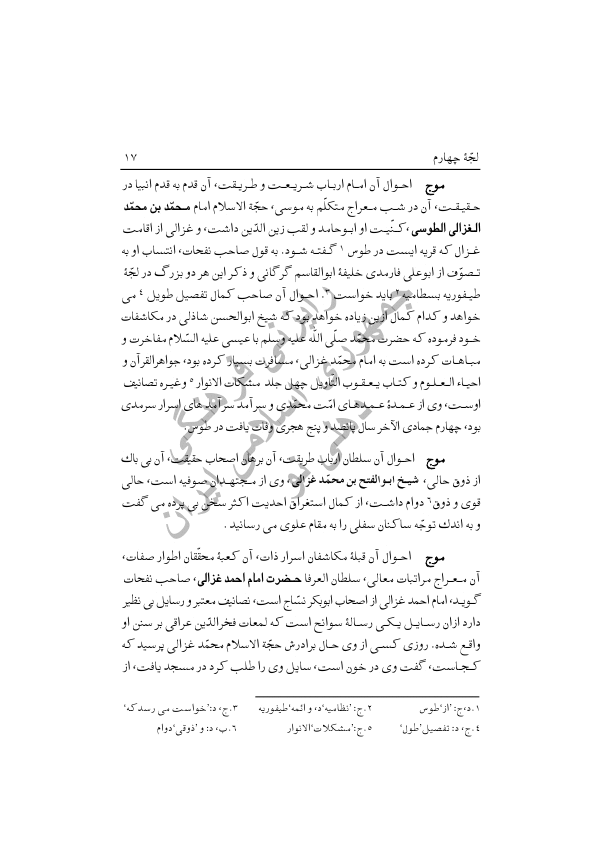 لجّهٔ چهارم ۱۷
موج احـوال آن امـام اربـاب شـریـعـت و طـریـقت، آن قدم به قدم انبیا در
حـقیـقـت، آن در شـب مـعراج متکلّم به موسی، حجّة الاسلام امام محـمّد بن محمّد
الـغزالی الطوسی، کـنّیـت او ابـوحامد و لقب زین الدّین داشت، و غزالی از اقامت
غـزال که قریه ایست در طوس ۱ گـفتـه شـود. به قول صاحب نفحات، انتساب او به
تـصوّف از ابوعلی فارمدی خلیفهٔ ابوالقاسم گرگانی و ذکر این هر دو بزرگ در لجّهٔ
طیـفوریه بسطامیه ۲ باید خواست ۳. احـوال آن صاحب کمال تفصیل طویل ۴ می
خواهد و کدام کمال ازین زیاده خواهد بود که شیخ ابوالحسن شاذلی در مکاشفات
خـود فرموده که حضرت محمّد صلّی اللّه علیه وسلم با عیسی علیه السّلام مفاخرت و
مبـاهـات کرده است به امام محـمّد غزالی، مسافرت بسیار کرده بود، جواهرالقرآن و
احیاء الـعـلـوم و کتاب یـعـقـوب التّاویل چهل جلد مشکات الانوار ۵ وغیـره تصانیف
اوسـت، وی از عـمـدهٔ عـمـدهـای امّت محمّدی و سرآمد سرآمد های اسرار سرمدی
بود، چهارم جمادی الآخر سال پانصد و پنج هجری وفات یافت در طوس.
موج احـوال آن سلطان ارباب طریقت، آن برهان اصحاب حقیقت، آن بی باك
از ذوق حالی، شیـخ ابـوالفتح بن محمّد غزالی، وی از مـجتهـدان صوفیه است، حالی
قوی و ذوق ۶ دوام داشـت، از کمال استغراق احدیت اکثر سخن بی پرده می گفت
و به اندك توجّه ساکنان سفلی را به مقام علوی می رسانید .
موج احـوال آن قبلهٔ مکاشفان اسرار ذات، آن کعبهٔ محقّقان اطوار صفات،
آن مـعـراج مراتبات معالی، سلطان العرفا حـضـرت امام احمد غزالی، صاحب نفحات
گـویـد، امام احمد غزالی از اصحاب ابوبکر نسّاج است، تصانیف معتبر و رسایل بی نظیر
دارد ازان رسـایـل یـکـی رسـالهٔ سـوانح است که لمعات فخرالدّین عراقی بر سنن او
واقـع شـده. روزی کـسـی از وی حـال برادرش حجّة الاسلام محمّد غزالی پرسید که
کـجـاسـت، گفت وی در خون است، سایل وی را طلب کرد در مسجد یافت، از
۱.د،ج: ’از‘ طوس ۲.ج: ’نظامیه‘ د، و ائمه ’طیفوریه ۳.ج، د: ’خواست می رسد که‘
۴.ج، د: تفصیل ’طول‘ ۵.ج: ’مشکلات‘ الانوار ۶.ب، د: و ’ذوقی‘ دوام
جمهوری اسلامی ایران
رایزنی فرهنگی
دهلی نو